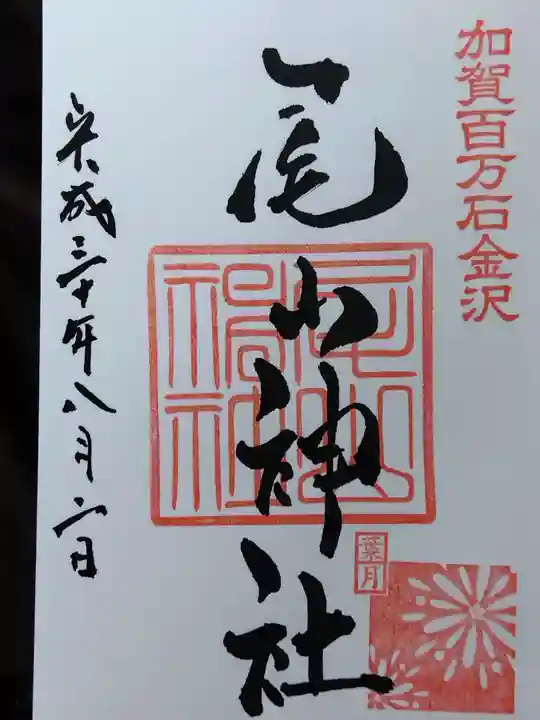 加賀百万石金沢
尾山神社
尾山神社
葉月
平成三十年八月六日